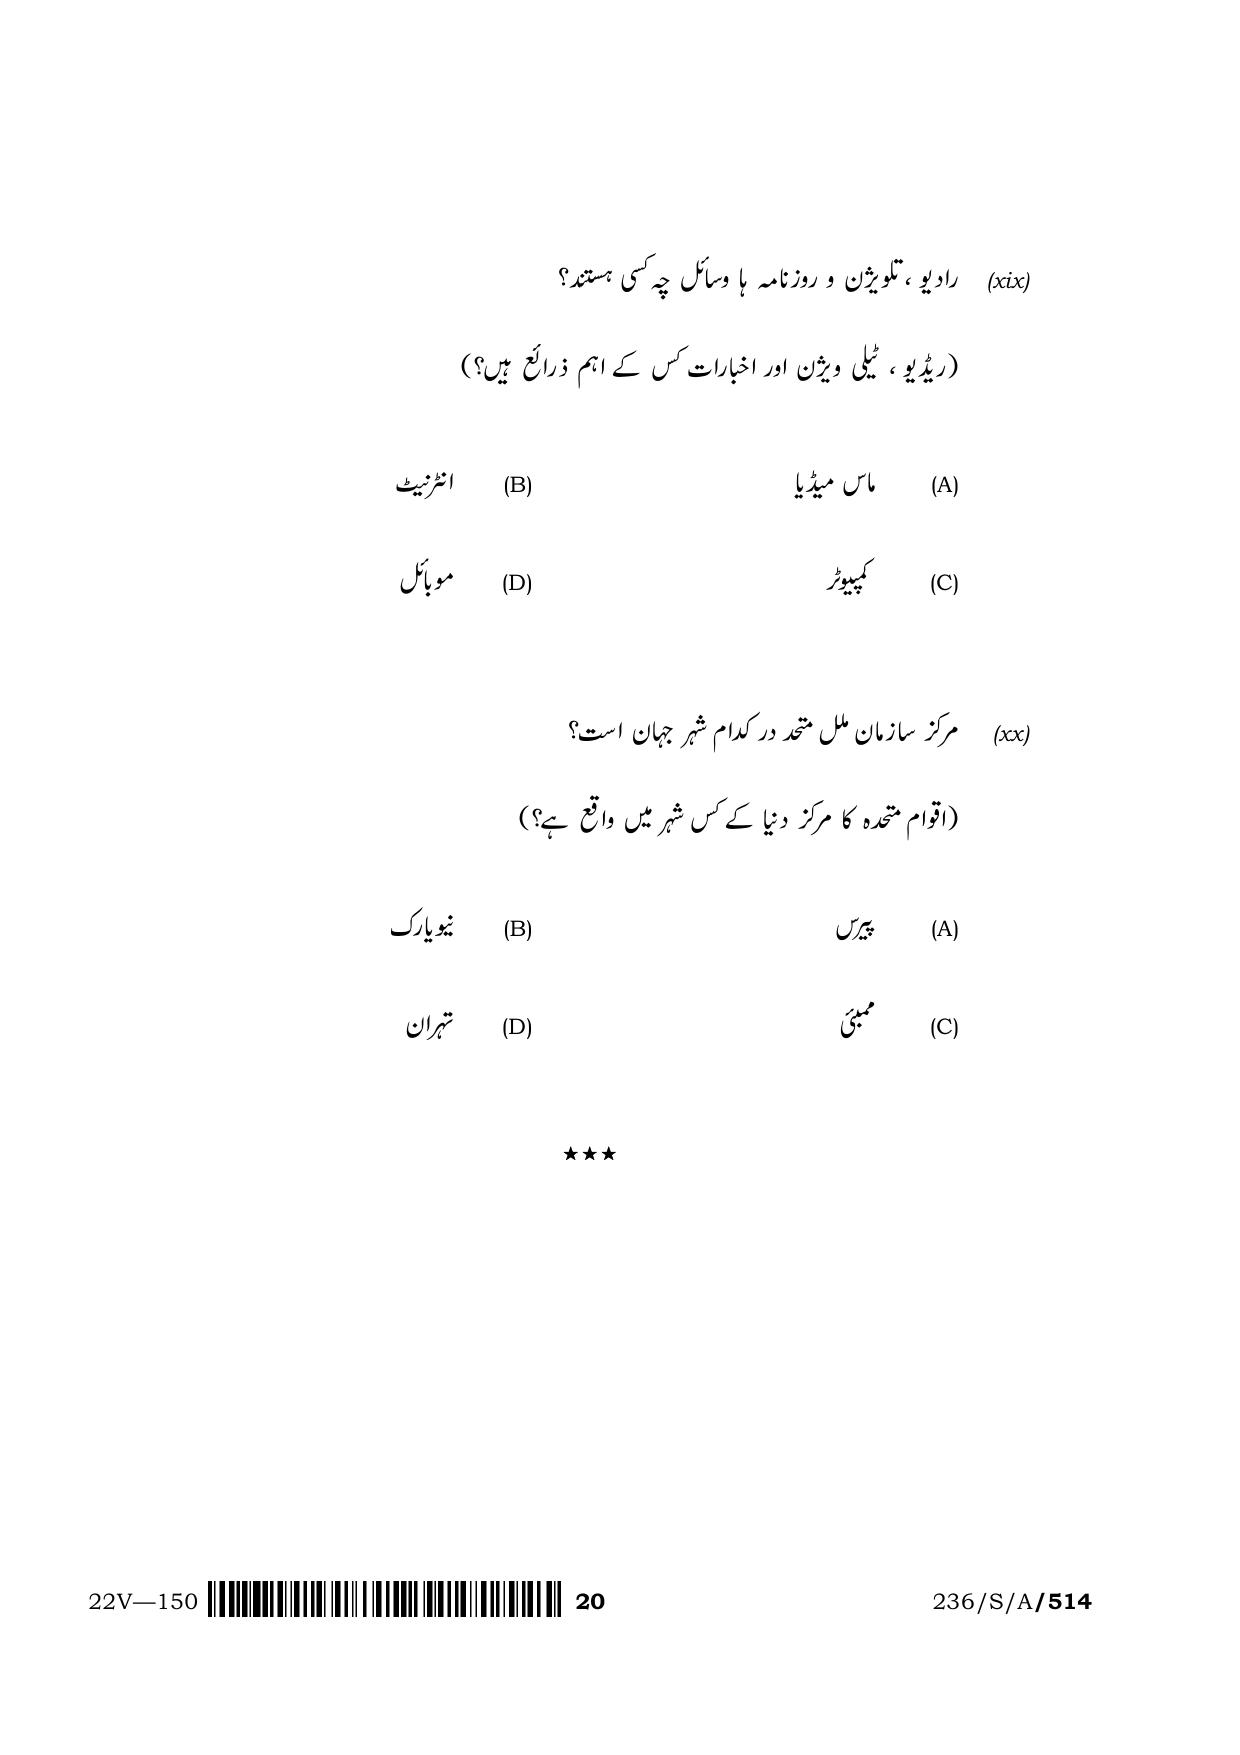 (xix) رادیو ، تلویژن و روزنامہ ہا وسائل چہ کسی ہستند؟
(ریڈیو ، ٹیلی ویژن اور اخبارات کس کے اہم ذرائع ہیں؟)
(A) ماس میڈیا (B) انٹرنیٹ
(C) کمپیوٹر (D) موبائل
(xx) مرکز سازمان ملل متحد در کدام شہر جہان است؟
(اقوام متحدہ کا مرکز دنیا کے کس شہر میں واقع ہے؟)
(A) پیرس (B) نیویارک
(C) ممبئی (D) تہران
★★★
22V—150 20 236/S/A/514